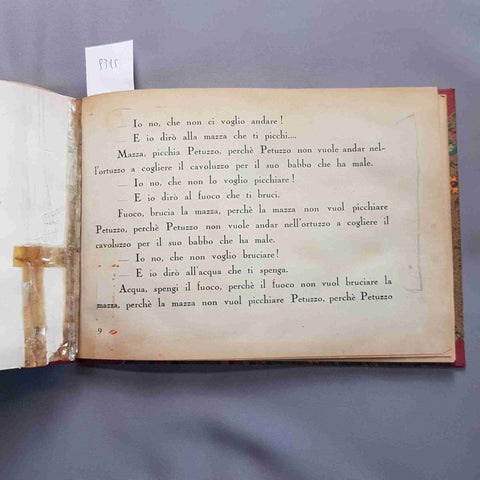 8395
— Io no, che non ci voglio andare!
— E io dirò alla mazza che ti picchi....
Mazza, picchia Petuzzo, perchè Petuzzo non vuole andar nel-
l'ortuzzo a cogliere il cavoluzzo per il suo babbo che ha male.
— Io no, che non lo voglio picchiare!
— E io dirò al fuoco che ti bruci.
Fuoco, brucia la mazza, perchè la mazza non vuol picchiare
Petuzzo, perchè Petuzzo non vuole andar nell'ortuzzo a cogliere il
cavoluzzo per il suo babbo che ha male.
— Io no, che non voglio bruciare!
— E io dirò all'acqua che ti spenga.
Acqua, spengi il fuoco, perchè il fuoco non vuol bruciare la
mazza, perchè la mazza non vuol picchiare Petuzzo, perchè Petuzzo
9